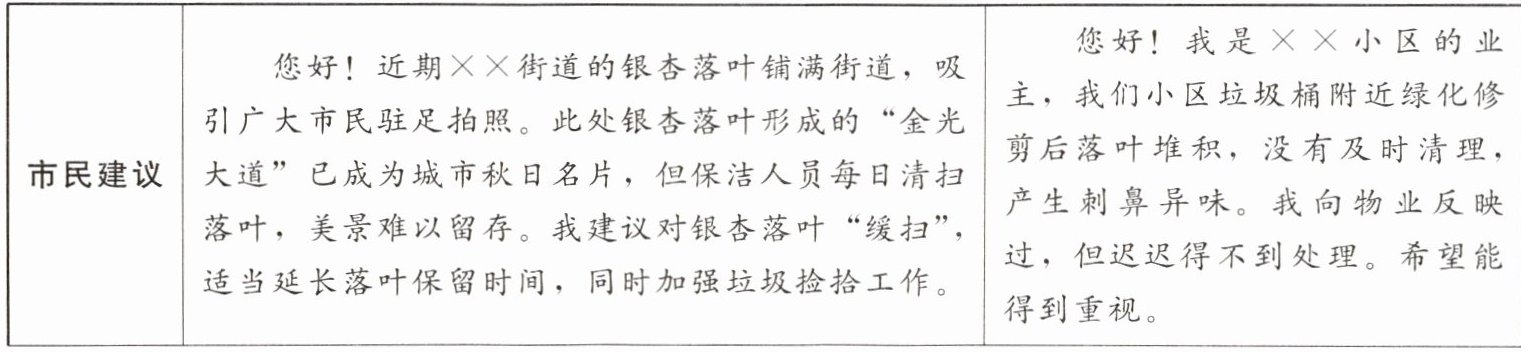 市民建议
您好！近期××街道的银杏落叶铺满街道，吸
引广大市民驻足拍照。此处银杏落叶形成的“金光
大道”已成为城市秋日名片，但保洁人员每日清扫
落叶，美景难以留存。我建议对银杏落叶“缓扫”，
适当延长落叶保留时间，同时加强垃圾捡拾工作。
您好！我是××小区的业
主，我们小区垃圾桶附近绿化修
剪后落叶堆积，没有及时清理，
产生刺鼻异味。我向物业反映
过，但迟迟得不到处理。希望能
得到重视。